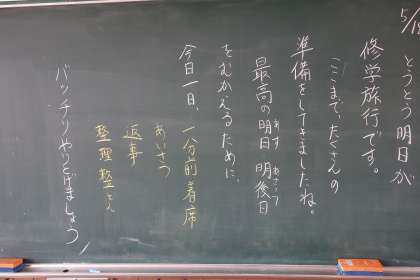 とうとう明日が
修学旅行です。
ここまで、たくさんの
準備をしてきましたね。
最高の明日(あす) 明後日(あさって)
をむかえるために、
今日一日、一分前着席
あいさつ
返事
整理整とん
バッチリやりとげましょう